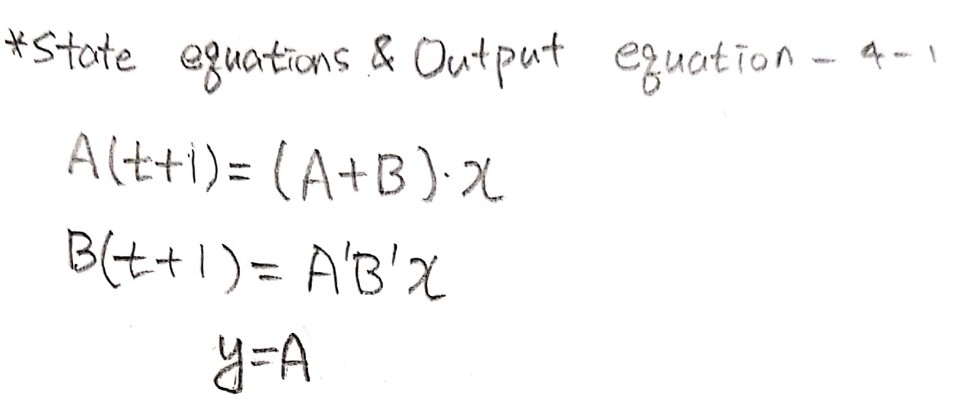 *State equations & Output equation - 4-1
A(t+1)=(A+B)·x
B(t+1)=A'B'x
y=A